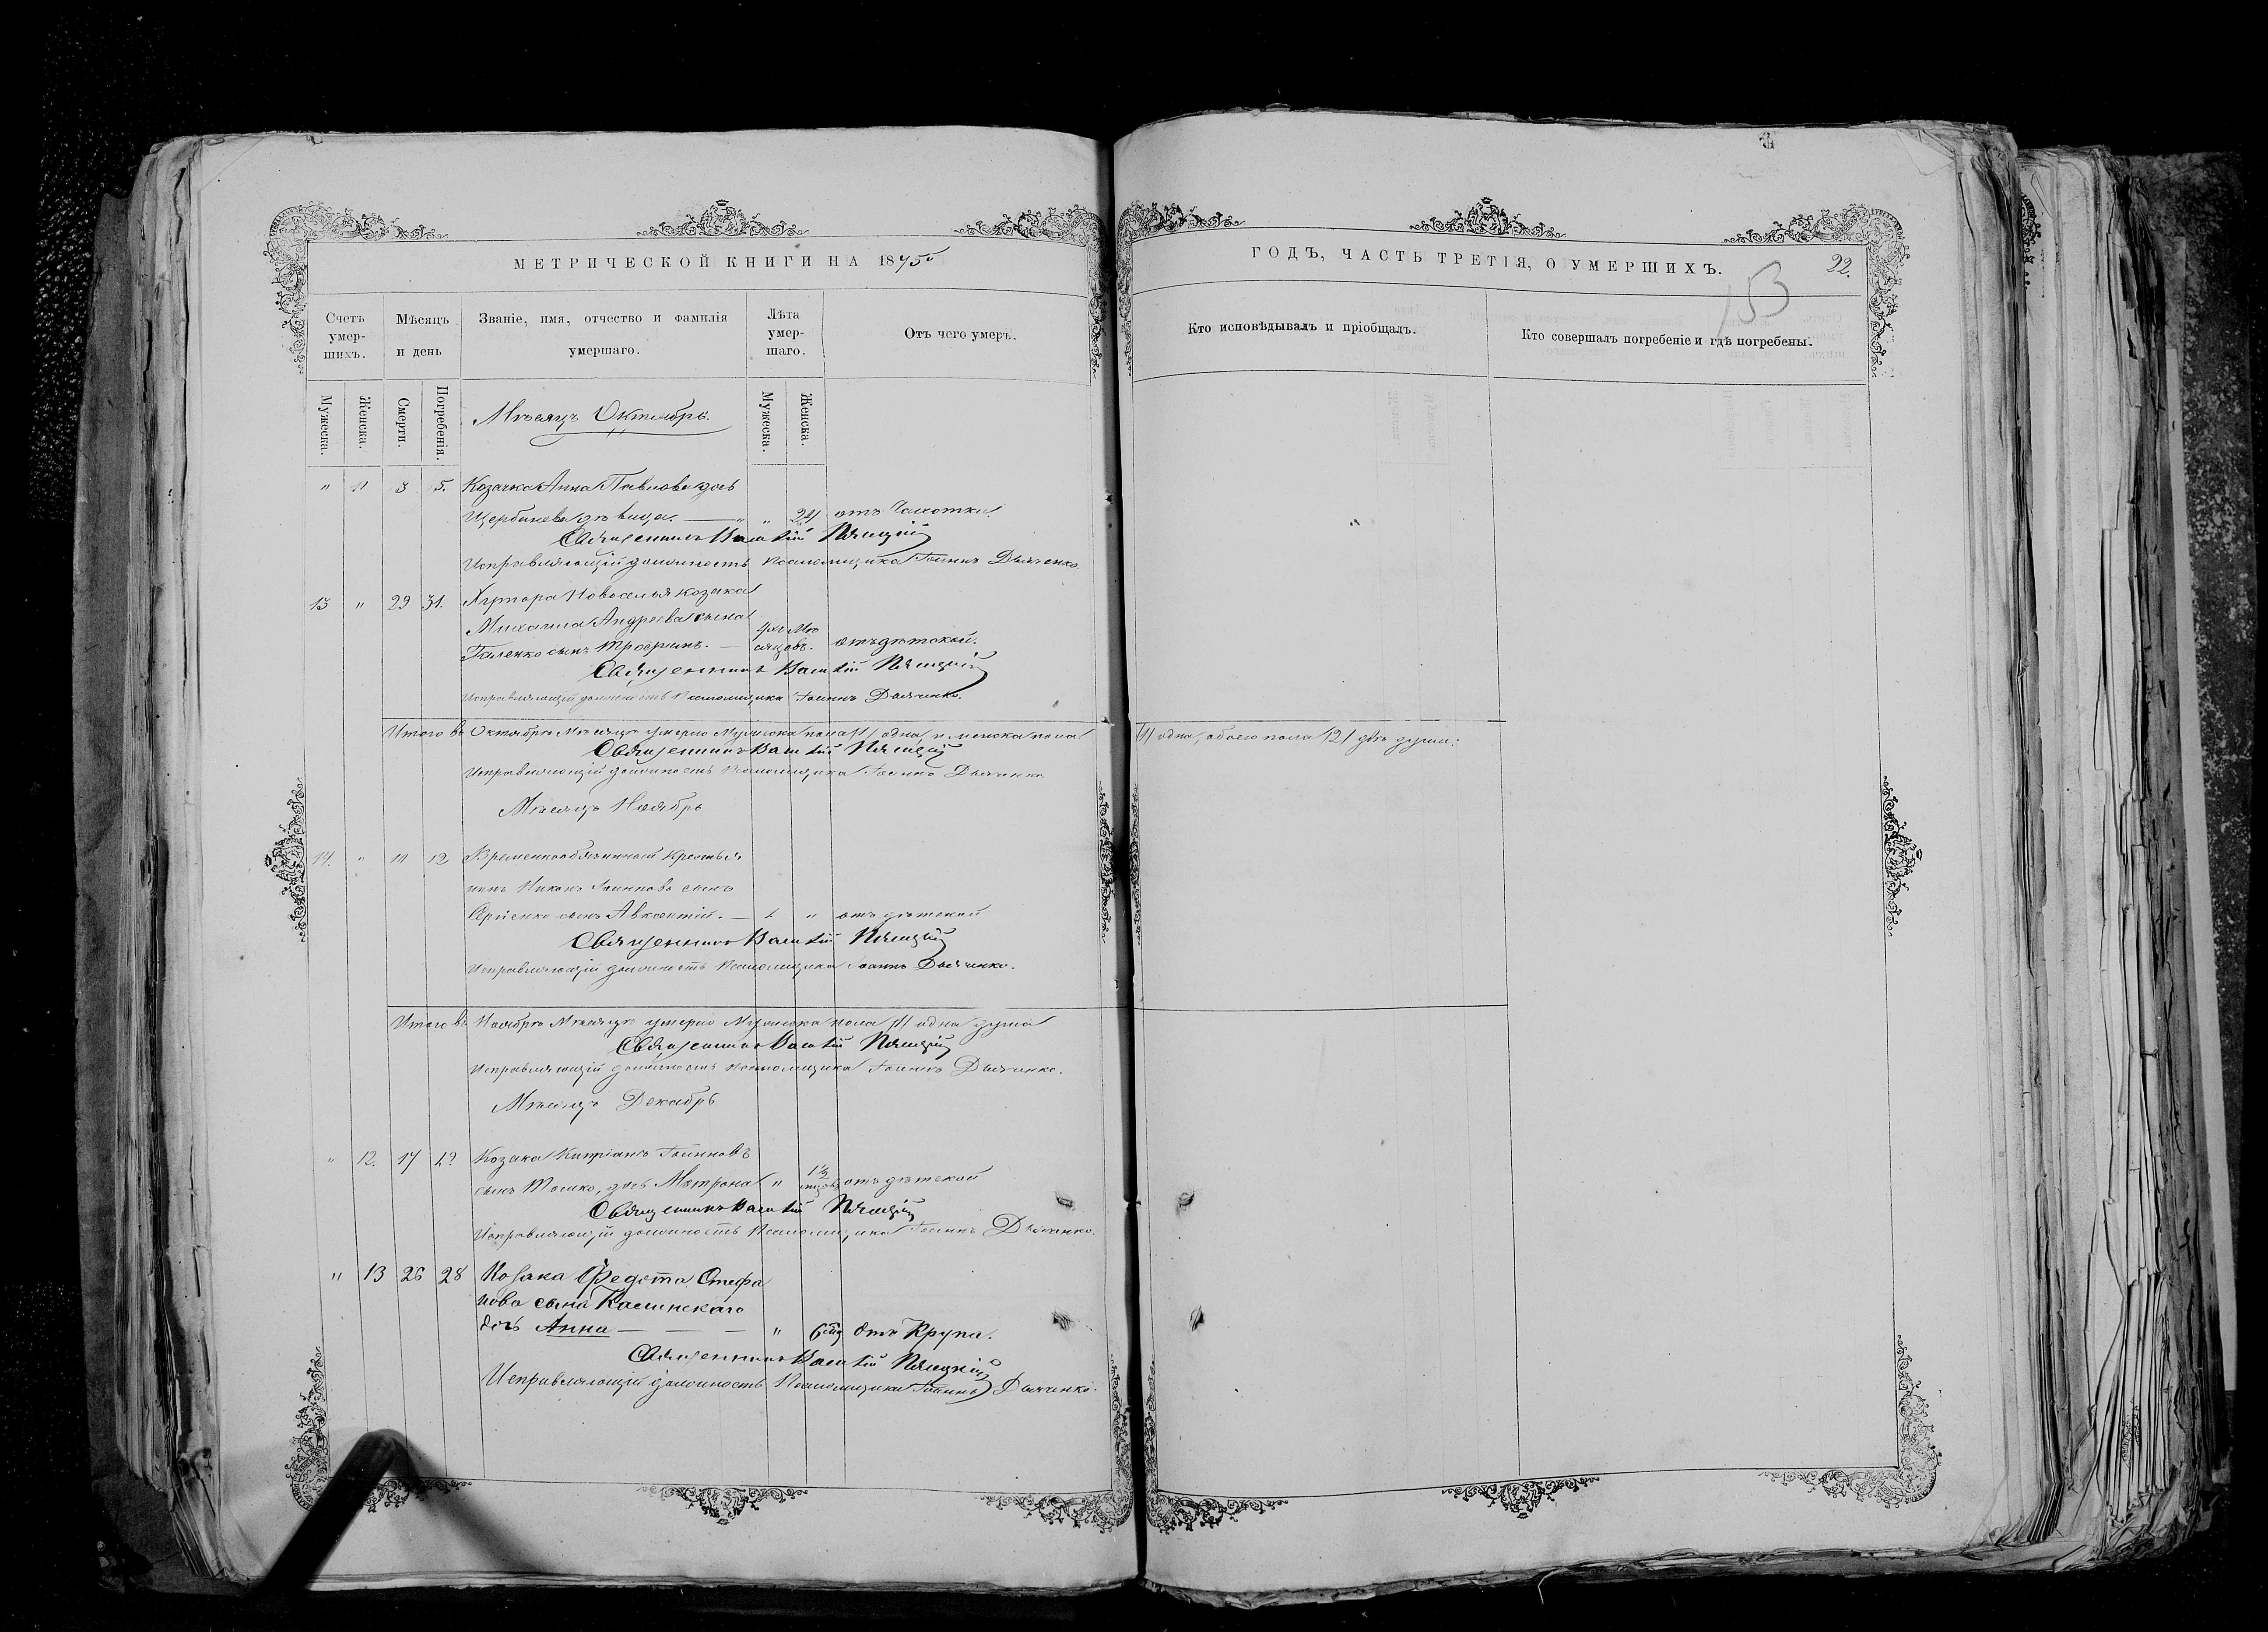 МЕТРИЧЕСКОЙ КНИГИ НА 1875
ГОДЪ, ЧАСТЬ ТРЕТІЯ, О УМЕРШИХЪ.
22.
153
Счетъ умер-шихъ.
Мѣсяцъ и день
Званіе, имя, отчество и фамилія умершаго.
Лѣта умер-шаго.
Отъ чего умеръ.
Кто исповѣдывалъ и пріобщалъ.
Кто совершалъ погребеніе и гдѣ погребены.
Мужеска.
Женска.
Смерти.
Погребенія.
Мужеска.
Женска.
Мѣсяцъ Октябрь.
" 11 3 5. Козачка Анна Павлова дочь
девица. — " " отъ Чахотки.
Священникъ
Исправляющій должность Псаломщика Іоаннъ Дьяченко
13 " 29 31. Хутора Новоселья козака
Михаила Андреева сына
сынъ Трофимъ. — отъ дѣтской.
Священникъ
Исправляющій должность Псаломщика Іоаннъ Дьяченко.
Итого въ Октябрѣ Мѣсяцѣ умерло Мужеска пола /1/ одна, и женска пола /1/ одна, обоего пола /2/ двѣ души.
Священникъ
Исправляющій должность Псаломщика Іоаннъ Дьяченко
Мѣсяцъ Ноябрь
14. " 12 Временнообязанный Крестья
нинъ Никонъ Іоанновъ сынъ
сынъ Авксентій. — " отъ дѣтской
Священникъ
Исправляющій должность Псаломщика Іоаннъ Дьяченко.
Итого въ Ноябрѣ Мѣсяцѣ умерло Мужеска пола /1/ одна душа
Священникъ
Исправляющій должность Псаломщика Іоаннъ Дьяченко.
Мѣсяцъ Декабрь
" 12. 17 Козака Кипріанъ Іоанновъ
сынъ дочь Матрона " отъ дѣтской
Священникъ
Исправляющій должность Псаломщика Іоаннъ Дьяченко.
" 13 26 28 Козака Федота Стефа
нова сына Калинскаго
дочь Анна — — — " 6 отъ Крупа.
Священникъ
Исправляющій должность Псаломщика Іоаннъ Дьяченко.